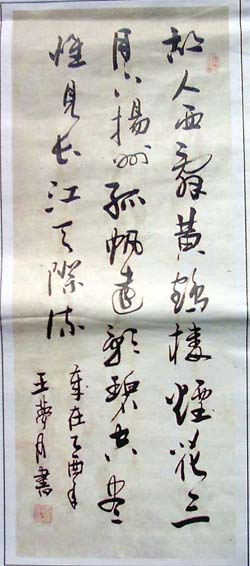 故人西辭黃鶴樓煙花三
月下揚州孤帆遠影碧空盡
惟見長江天際流
歲在乙酉年
王夢月書